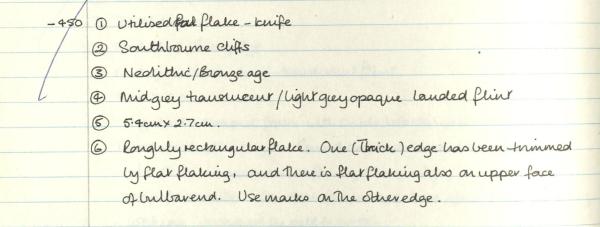 -450 ① Utilised flake - knife
② Southbourne cliffs
③ Neolithic/Bronze age
④ Mid grey translucent/light grey opaque banded flint
⑤ 5.4cm x 2.7cm.
⑥ Roughly rectangular flake. One (Thick) edge has been trimmed
by flat flaking, and there is flat flaking also on upper face
of bulbar end. Use marks on the other edge.